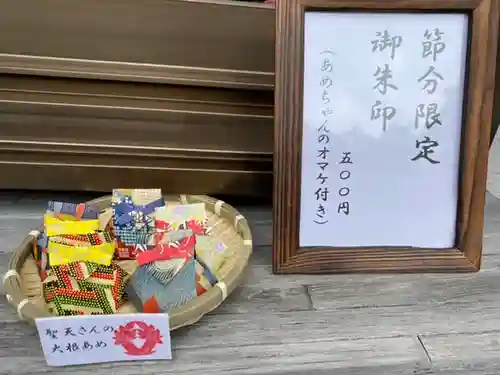 節分限定
御朱印
五〇〇円
(あめちゃんのオマケ付き)
聖天さんの
大根あめ